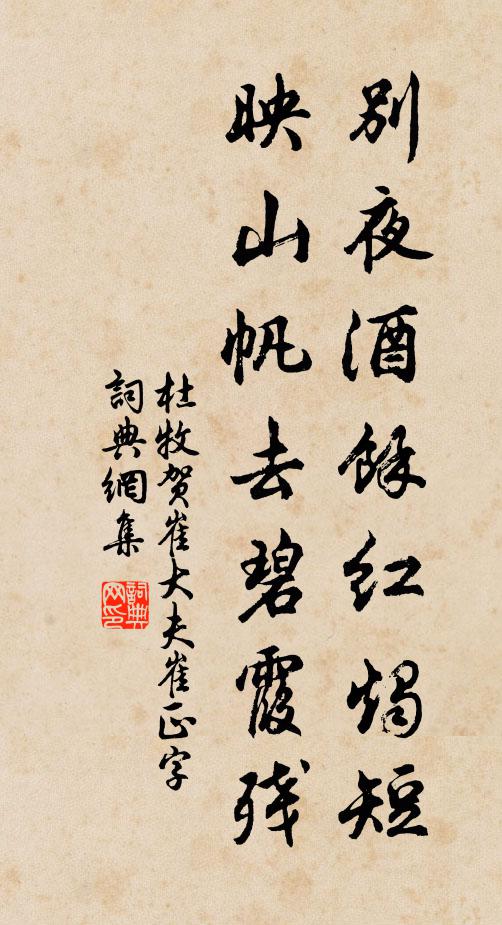 别夜酒餘红燭短
映山帆去碧霞残
杜牧贺崔大夫崔正字
詞典網集
詞典网印